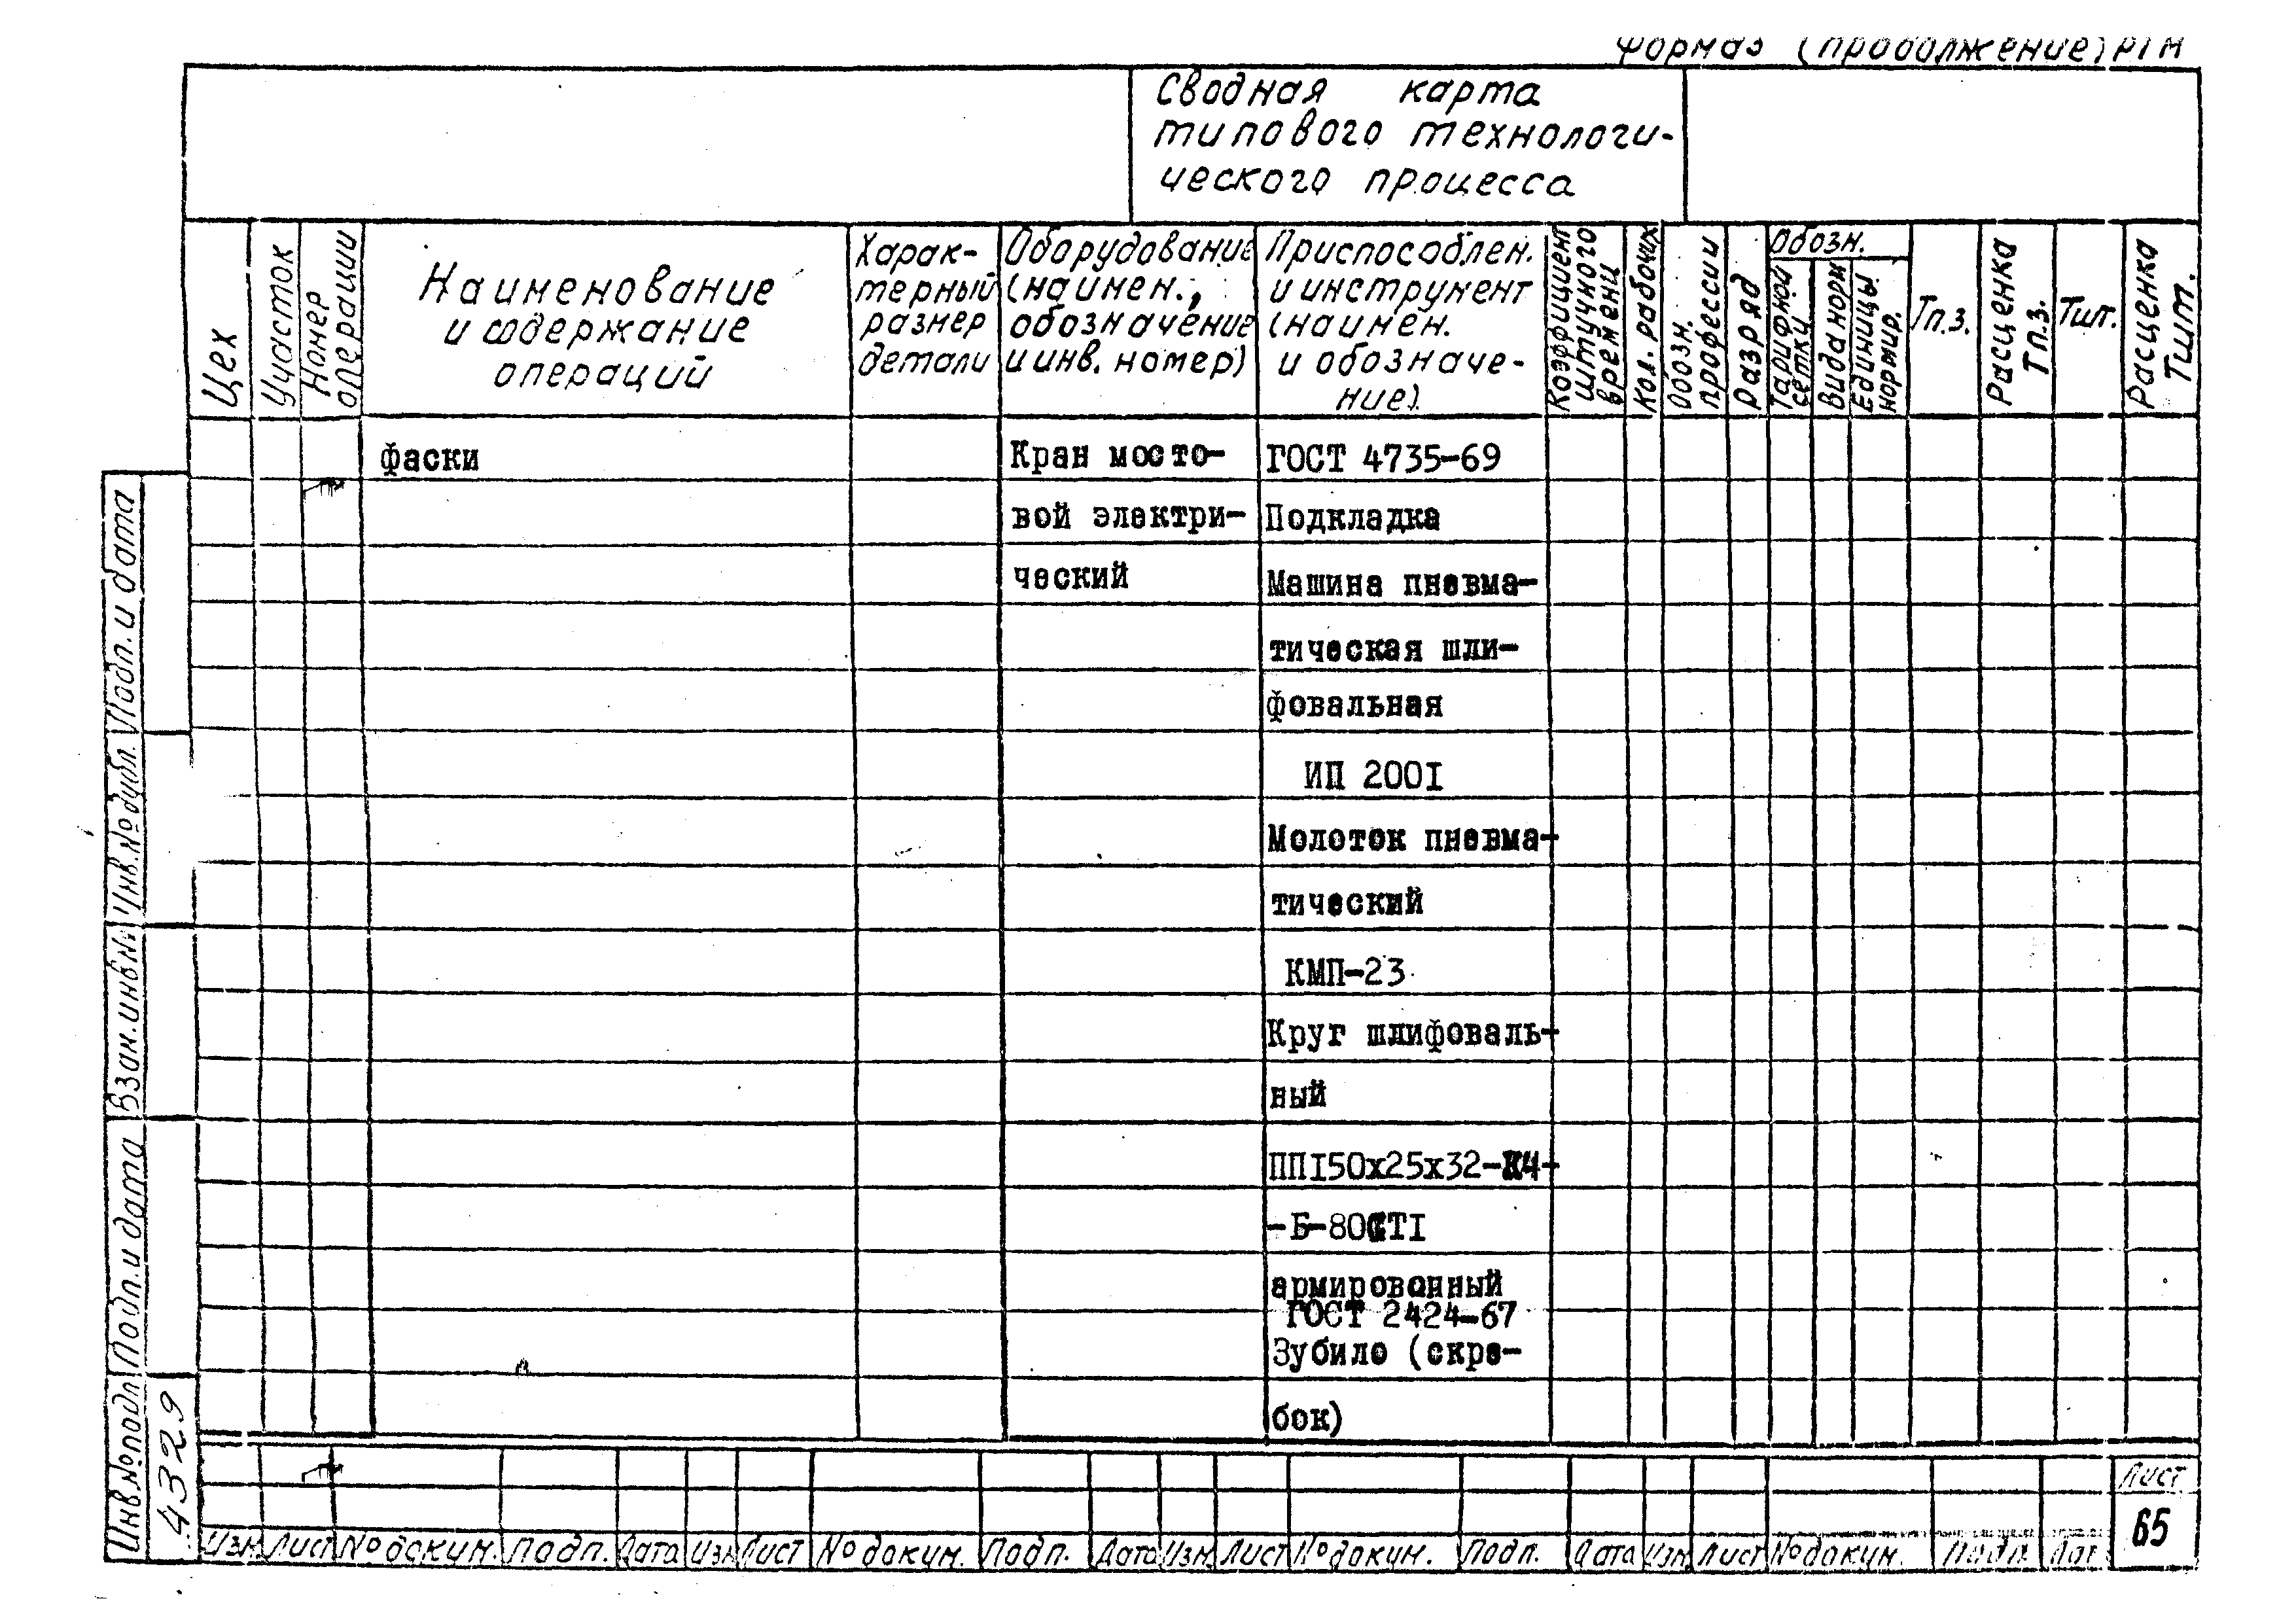 Форма 3 (продолжение) РТМ
Сводная карта
типового технологи-
ческого процесса
Цех
Участок
Номер
операции
Наименование
и содержание
операций
Харак-
терный
размер
детали
Оборудование
(наимен.,
обозначение
и инв. номер)
Приспособлен.
и инструмент
(наимен.
и обозначе-
ние).
Коэффициент
штучного
времени
Кол. рабочих
Обозн.
профессии
Разряд
Обозн.
Тарифной
сетки
Вида норм
Единицы
нормир.
Тп.з.
Расценка
Тп.з.
Тшт.
Расценка
Тшт.
фаски
Кран мосто-
ГОСТ 4735-69
вой электри-
Подкладка
ческий
Машина пневма-
тическая шли-
фовальная
ИП 200I
Молоток пневма-
тический
КМП-23
Круг шлифоваль-
ный
ППI50х25х32-К4-
-Б-80СТI
армированный
ГОСТ 2424-67
Зубило (скре-
бок)
Подп. и дата
Инв.№ дубл.
Взам.инв№
Подп. и дата
Инв.№подл
4329
Изм Лист № докум. Подп. Дата Изм Лист № докум. Подп. Дата Изм. Лист № докум. Подп. Дата Изм Лист № докум. Подп. Дат
Лист
65